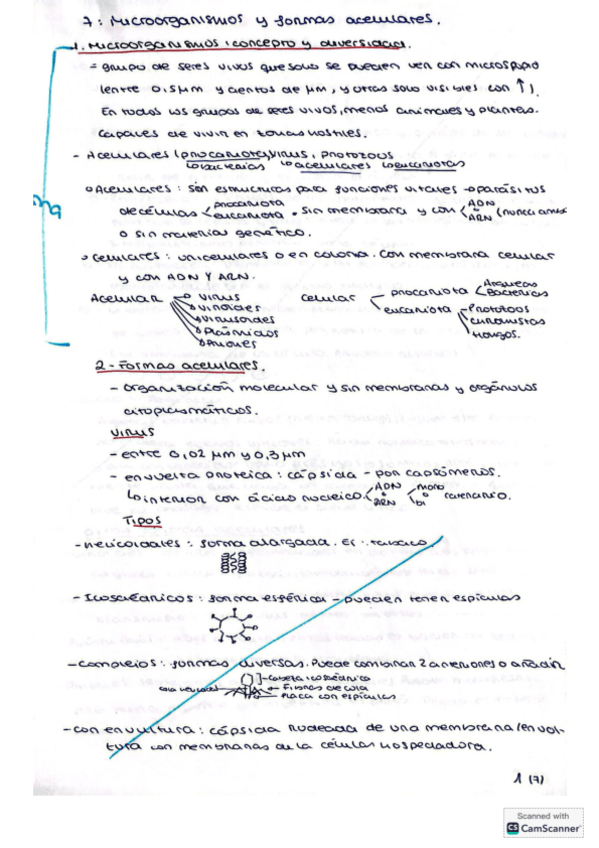 7: Microorganismos y formas acelulares.
1. Microorganismos: concepto y diversidad.
= grupo de seres vivos que solo se pueden ven con microspopio
(entre 0,5 μm y cientos de μm, y otras solo visibles con ↑).
En todos los grupos de seres vivos, menos animales y plantas.
Capaces de vivir en zonas hostiles.
- Acelulares (procariota), virus, protozoos
↳ bacterias ↳ acelulares ↳ eucariotas
Acelulares: son estructuras para funciones vitales → parásitos
de células procariota eucariota • sin membrana y con ADN ARN (nunca ambos
o sin material genético.
Celulares: unicelulares o en colonia. Con membrana celular
y con ADN Y ARN.
Acelular virus viroides virusoides Plásmidos Priones
Celular procariota Arqueas Bacterias
eucariota Protozoos cromistas Hongos.
2 - Formas acelulares.
- organización molecular y sin membranas y orgánulos
citoplasmáticos.
Virus
- entre 0,02 μm y 0,3 μm
- envuelta proteica: cápsida - por capsómeros.
↳ interior con ácido nucleico ADN o ARN mono o bi catenario.
Tipos
- Helicoidales: forma alargada. Ej: tabaco
- Icosaédricos: forma esférica - pueden tener espículas
- complejos: formas diversas. Puede combinar 2 anteriores o añadir
cabeza icosaédrica
cola helicoidal
Fibras de cola
placa con espículas
- con envoltura: cápsida rodeada de una membrana/envol-
tura con membranas de la células hospedadora.
1 (7)
Scanned with
CS CamScanner